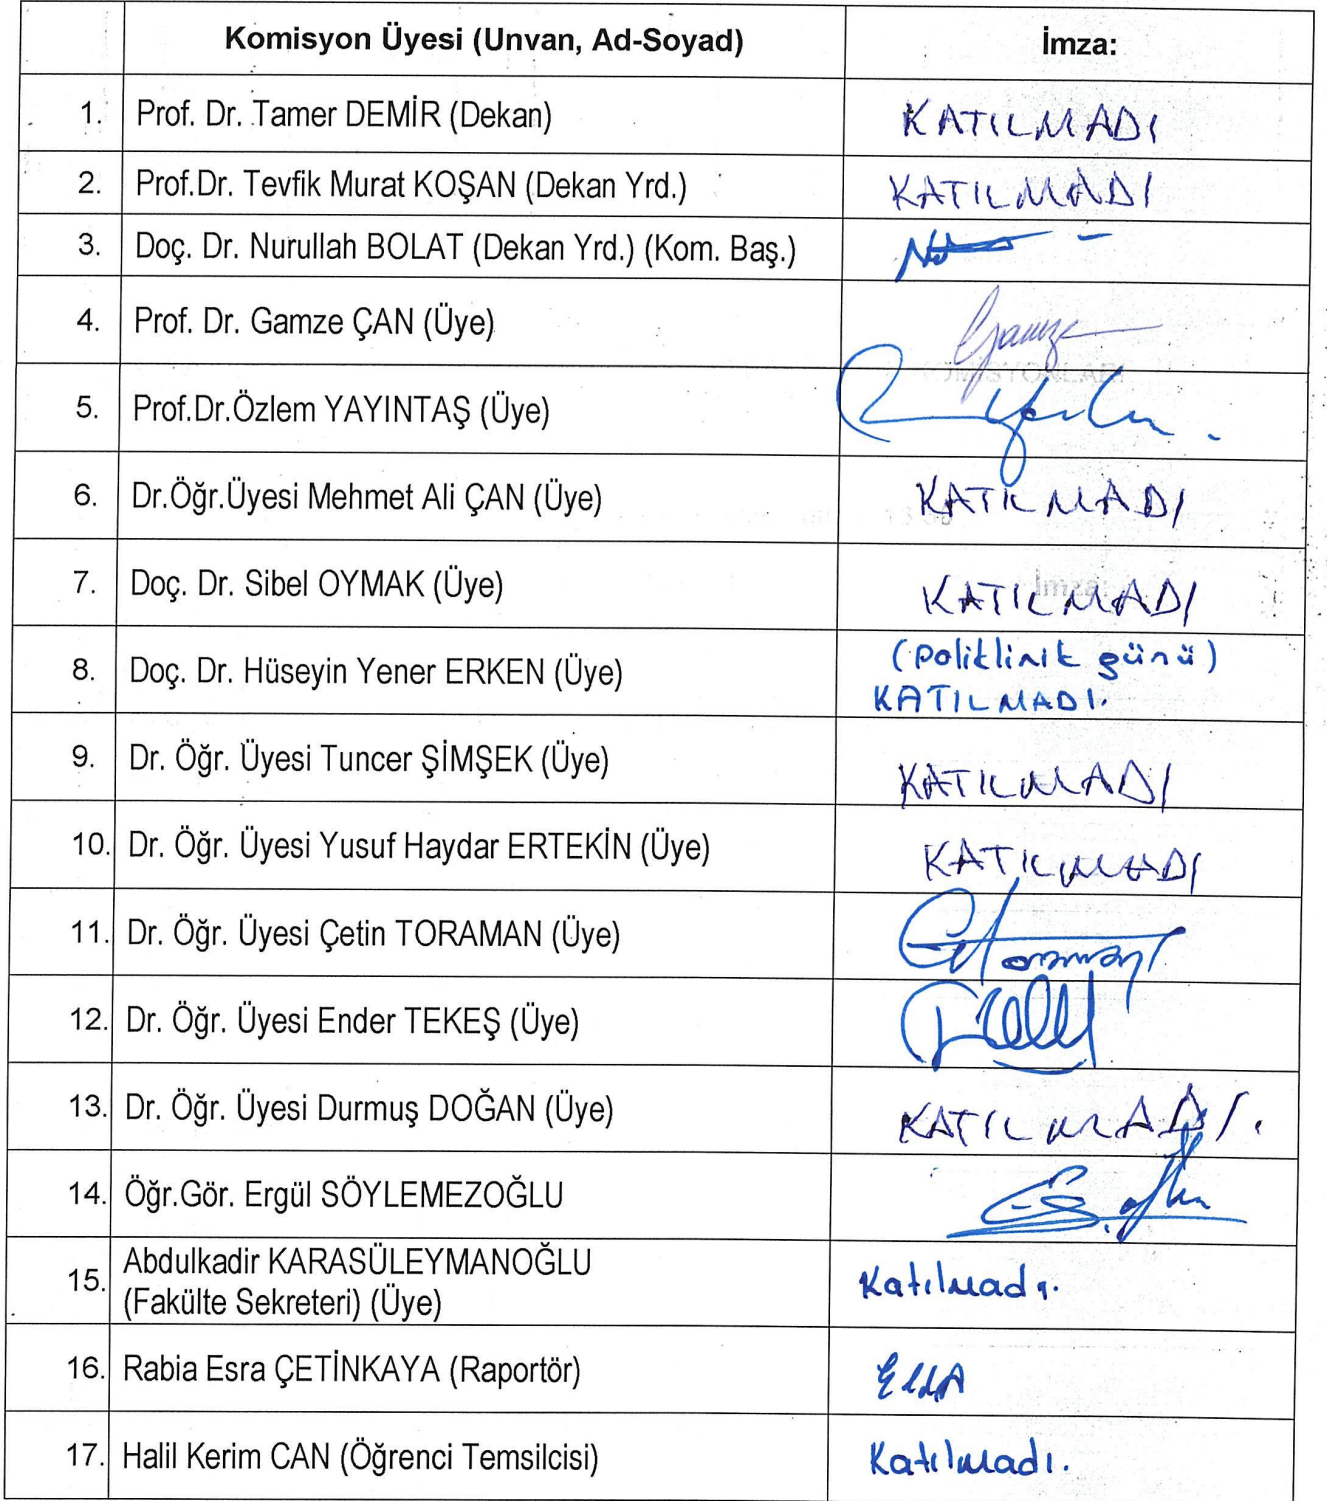 Komisyon Üyesi (Unvan, Ad-Soyad) İmza:
1. Prof. Dr. Tamer DEMİR (Dekan) KATILMADI
2. Prof.Dr. Tevfik Murat KOŞAN (Dekan Yrd.) KATILMADI
3. Doç. Dr. Nurullah BOLAT (Dekan Yrd.) (Kom. Baş.)
4. Prof. Dr. Gamze ÇAN (Üye) Gamze
5. Prof.Dr.Özlem YAYINTAŞ (Üye)
6. Dr.Öğr.Üyesi Mehmet Ali ÇAN (Üye) KATILMADI
7. Doç. Dr. Sibel OYMAK (Üye) KATILMADI
8. Doç. Dr. Hüseyin Yener ERKEN (Üye) (Poliklinik günü)
KATILMADI.
9. Dr. Öğr. Üyesi Tuncer ŞİMŞEK (Üye) KATILMADI
10. Dr. Öğr. Üyesi Yusuf Haydar ERTEKİN (Üye) KATILMADI
11. Dr. Öğr. Üyesi Çetin TORAMAN (Üye)
12. Dr. Öğr. Üyesi Ender TEKEŞ (Üye)
13. Dr. Öğr. Üyesi Durmuş DOĞAN (Üye) KATILMADI.
14. Öğr.Gör. Ergül SÖYLEMEZOĞLU
15. Abdulkadir KARASÜLEYMANOĞLU
(Fakülte Sekreteri) (Üye) Katılmadı.
16. Rabia Esra ÇETİNKAYA (Raportör)
17. Halil Kerim CAN (Öğrenci Temsilcisi) Katılmadı.